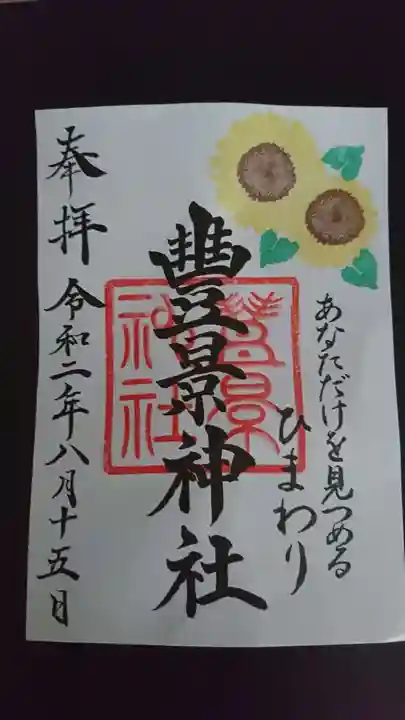 あなただけを見つめる
ひまわり
豊景神社
豊景神社
奉拝 令和二年八月十五日